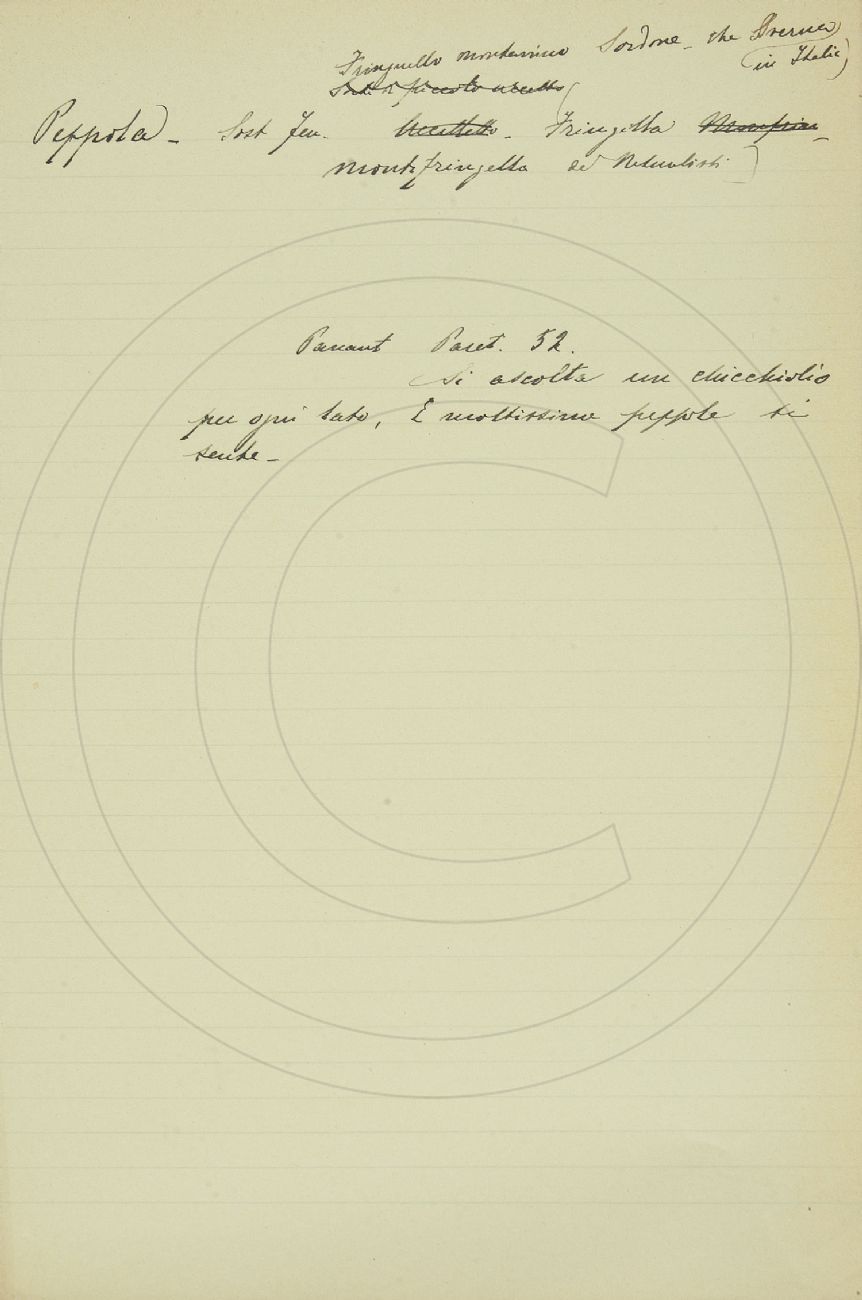 Fringuello montanino Sordone - che Sverna
in Italia)
Sord. di piccolo uccello (
Peppola - Sost Fem. Uccelletto - Fringella Monfrin -
montifringella dei Naturalisti)
Panant Paret. 52.
Si ascolta un chicchiolio
per ogni lato, E moltissime peppole si
sente -